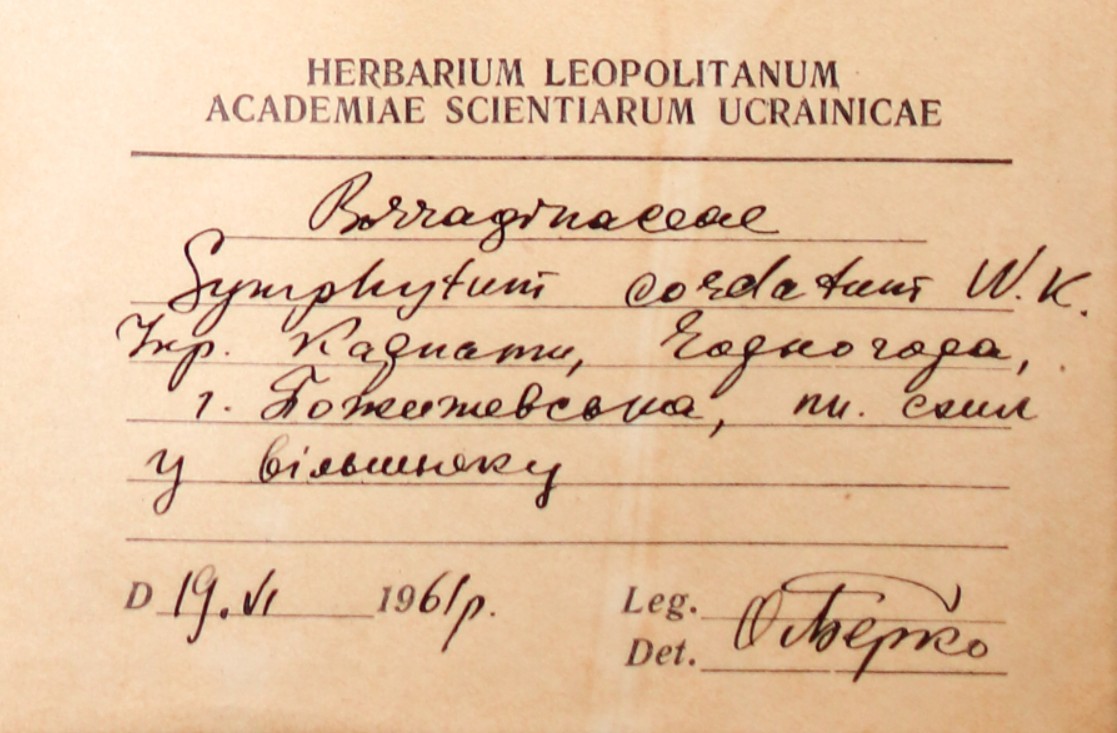 HERBARIUM LEOPOLITANUM
ACADEMIAE SCIENTIARUM UCRAINICAE
Borraginaceae
Symphytum cordatum W.K.
Укр. Карпати, Чорногора,
г. Пожижевська, пн. схил
у вільшняку
D 19.VI 1961р.
Leg.
Det.